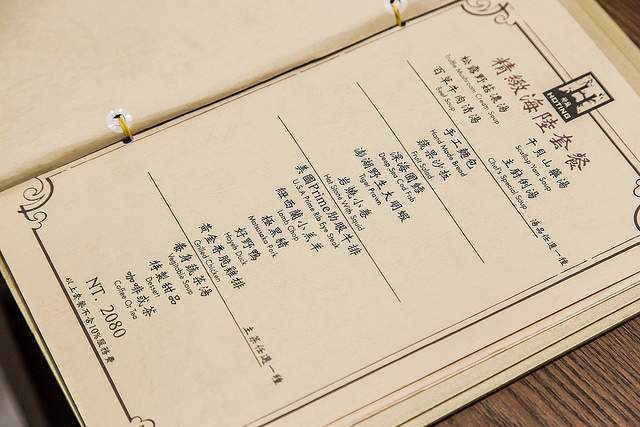 HOTING
精緻海陸套餐
干貝山藥湯
Scallop Yam Soup
主廚例湯
Chef's Special Soup
湯品任選一種
松露野菇濃湯
Truffle Mushroom Cream Soup
百草牛肉清湯
Beef Soup
手工麵包
Hand Made Bread
蔬果沙拉
Fruit Salad
深海圓鱈
Deep Sea Cod Fish
澎湖野生大明蝦
Tiger Prawn
岩燒小卷
Hot Stone With Squid
美國Prime肋眼牛排
U.S.A Prime Rib Eye Steak
紐西蘭小羔羊
Lamb Chop
極黑豬
Matsusaka Pork
好野鴨
Hayeh Duck
黃金香脆雞排
Grilled Chicken
主菜任選一種
養身蔬菜湯
Vegetable Soup
特製甜品
Dessert
咖啡或茶
Coffee Or Tea
NT. 2080
以上套餐不含10%服務費